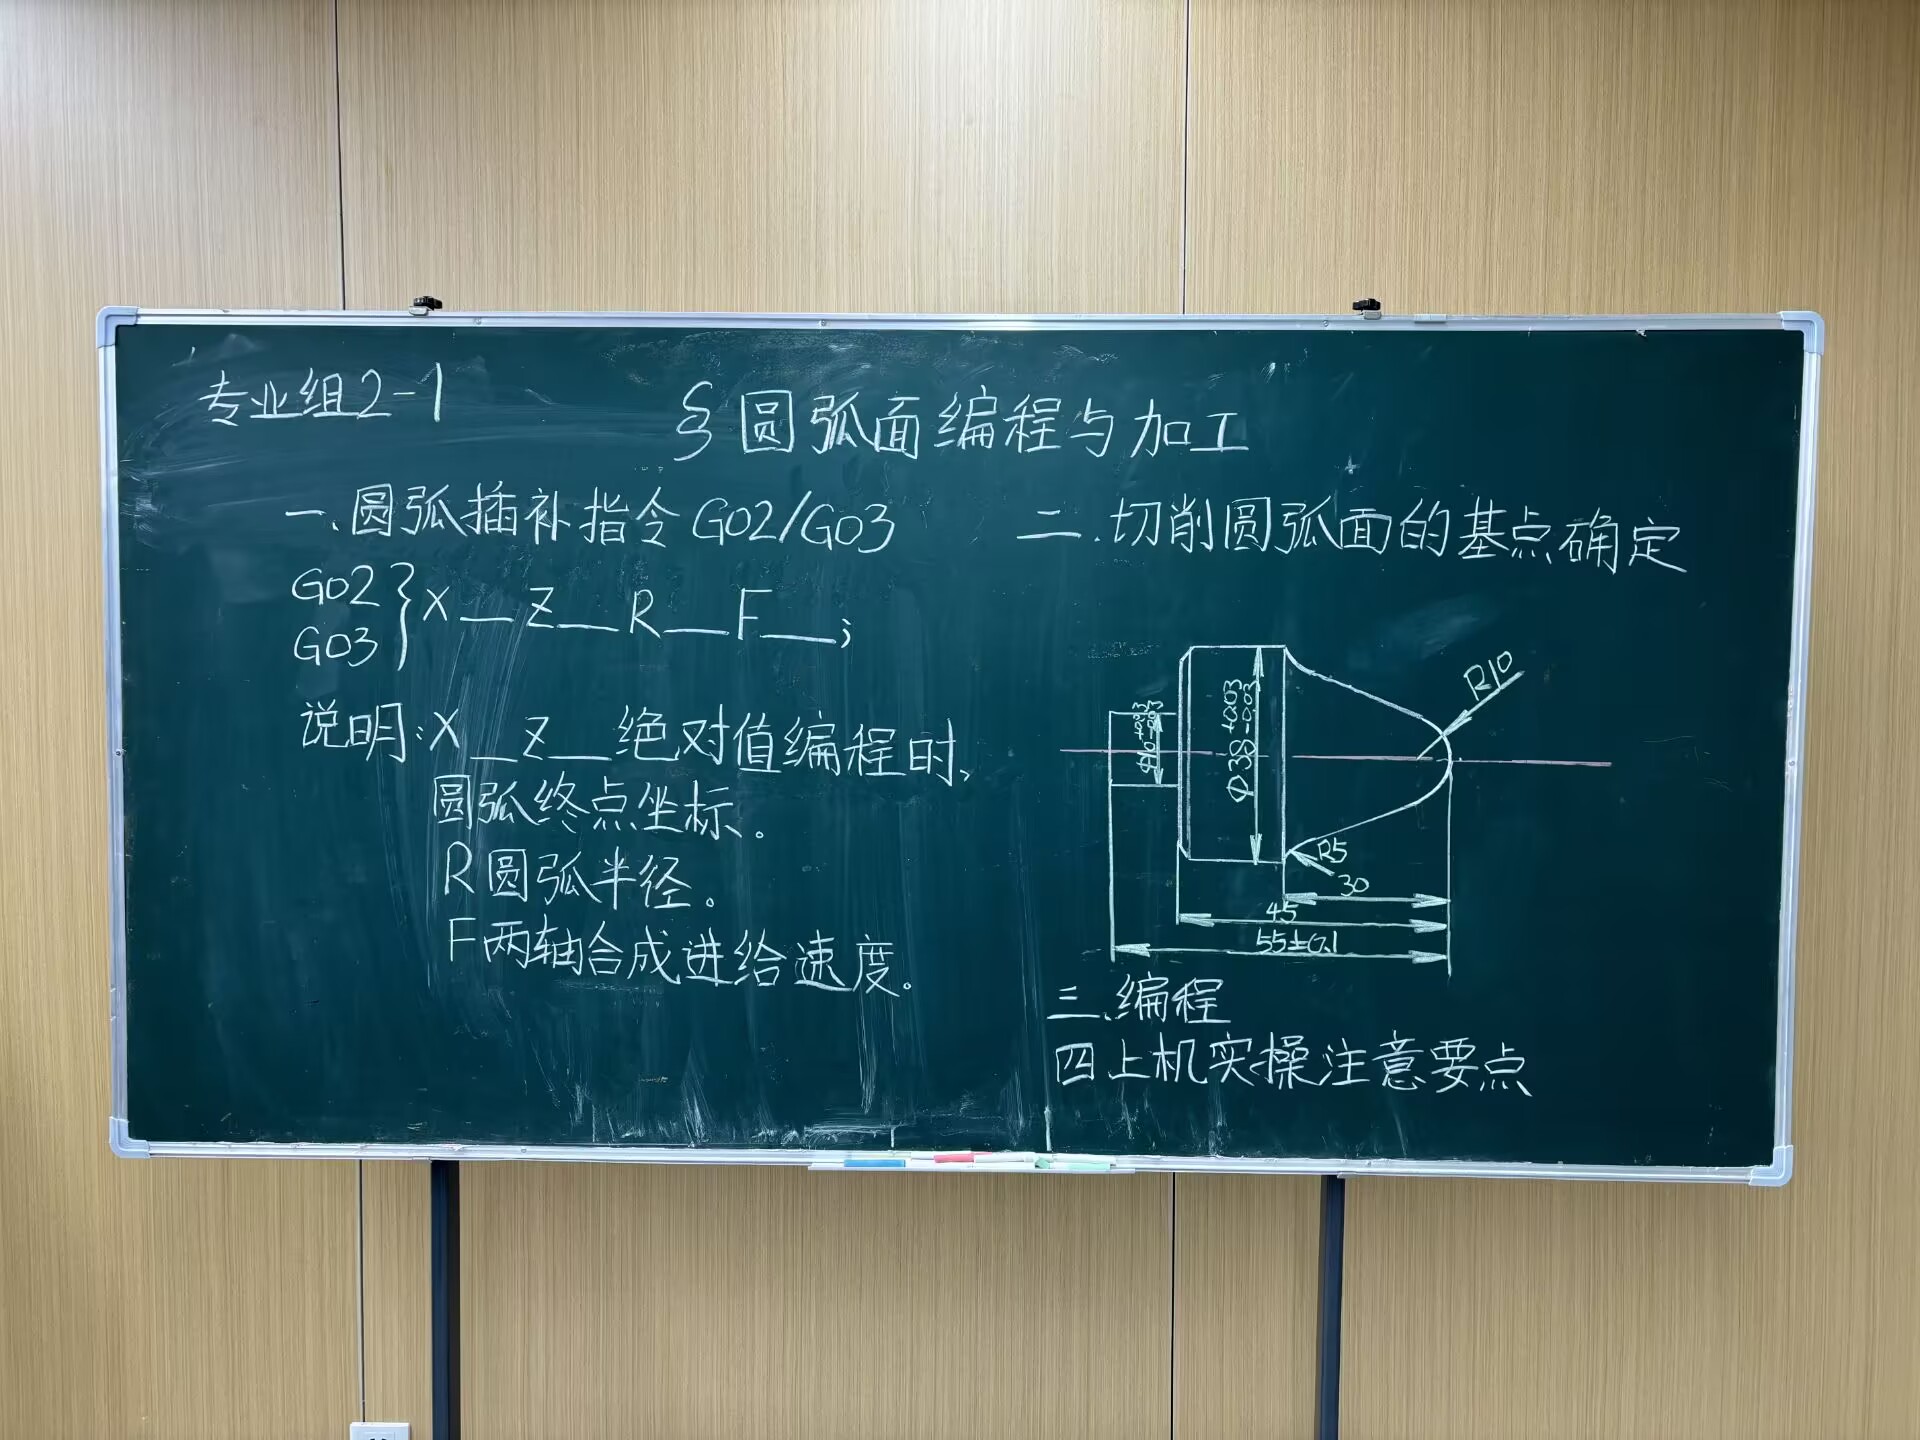 专业组2-1
§圆弧面编程与加工
一.圆弧插补指令G02/G03
G02
G03
}X__Z__R__F__;
说明:X__Z__绝对值编程时、
圆弧终点坐标。
R圆弧半径。
F两轴合成进给速度。
二.切削圆弧面的基点确定
R10
Φ38+0.03-0.03
R5
30
45
55±0.1
三.编程
四上机实操注意要点